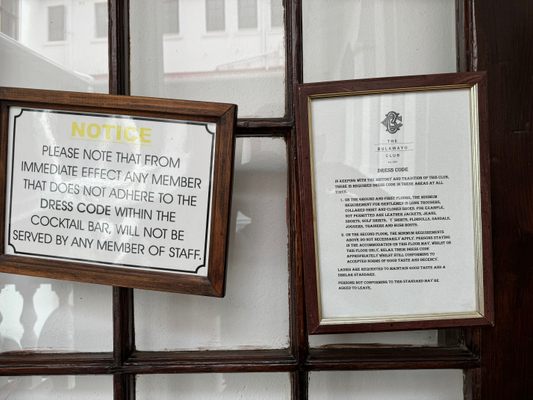 NOTICE
PLEASE NOTE THAT FROM
IMMEDIATE EFFECT ANY MEMBER
THAT DOES NOT ADHERE TO THE
DRESS CODE WITHIN THE
COCKTAIL BAR, WILL NOT BE
SERVED BY ANY MEMBER OF STAFF.
THE
BULAWAYO
CLUB
DRESS CODE
IN KEEPING WITH THE HISTORY AND TRADITION OF THIS CLUB,
THERE IS REQUIRED DRESS CODE IN THESE AREAS AT ALL
TIMES.
1. ON THE GROUND AND FIRST FLOORS, THE MINIMUM
REQUIREMENT FOR GENTLEMEN IS LONG TROUSERS,
COLLARED SHIRT AND CLOSED SHOES. FOR EXAMPLE,
NOT PERMITTED ARE LEATHER JACKETS, JEANS,
SHORTS, GOLF SHIRTS, T SHIRTS, FLIPFLOPS, SANDALS,
JOGGERS, TRAINERS AND BUSH BOOTS.
2. ON THE SECOND FLOOR, THE MINIMUM REQUIREMENTS
ABOVE DO NOT NECESSARILY APPLY. PERSONS STAYING
IN THE ACCOMMODATION ON THIS FLOOR MAY, WHILST ON
THIS FLOOR ONLY, RELAX THEIR DRESS CODE
APPROPRIATELY WHILST STILL CONFORMING TO
ACCEPTED NORMS OF GOOD TASTE AND DECENCY.
LADIES ARE REQUESTED TO MAINTAIN GOOD TASTE AND A
SIMILAR STANDARD.
PERSONS NOT CONFORMING TO THIS STANDARD MAY BE
ASKED TO LEAVE.